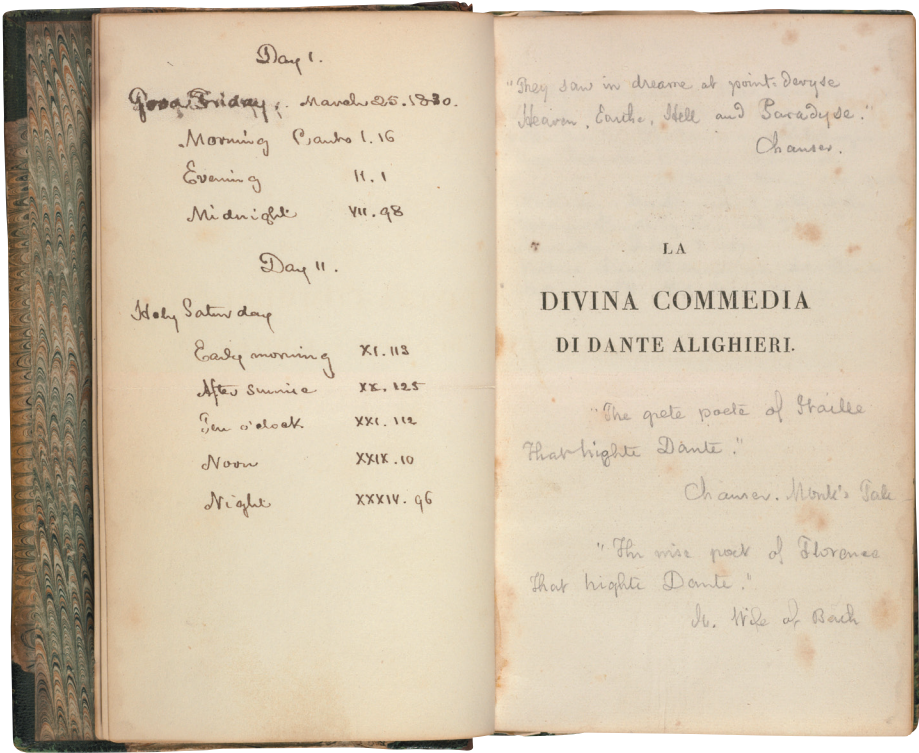 Day I.
Good Friday, March 25. 1830.
Morning Canto I. 16
Evening II. 1
Midnight VII. 98
Day II.
Holy Saturday
Early morning XI. 113
After sunrise XX. 125
Ten o'clock XXI. 112
Noon XXIX. 10
Night XXXIV. 96
"They saw in dreame at point-devyse
Heaven, Earthe, Hell and Paradyse."
Chauser.
LA
DIVINA COMMEDIA
DI DANTE ALIGHIERI.
"The grete poete of Itaille
That highte Dante."
Chauser. Monk's Tale
"The wise poet of Florence
That highte Dante."
Wife of Bath